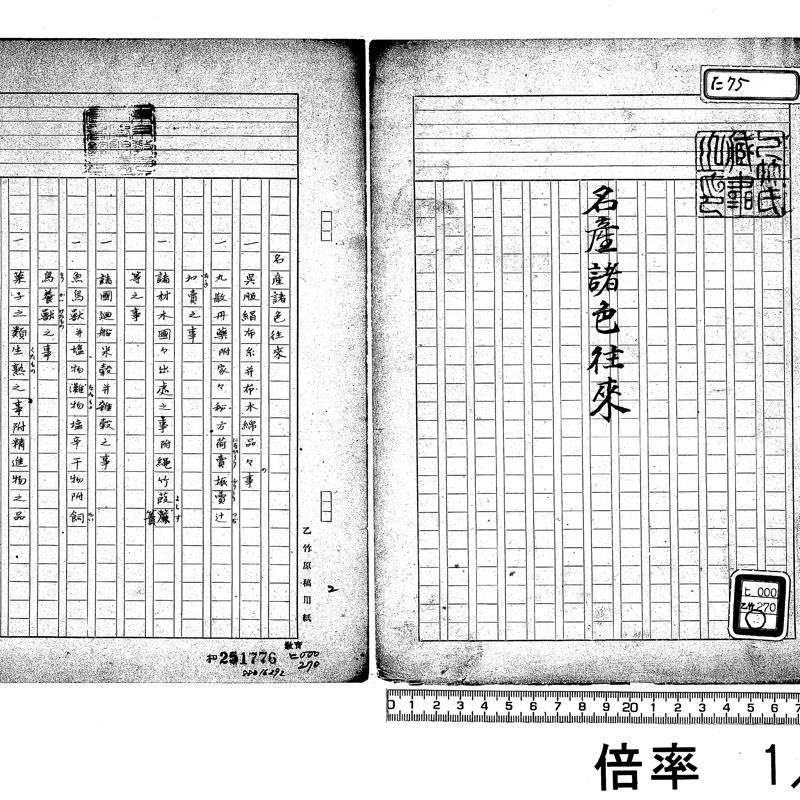 に75
名産諸色往來
ヒ000
乙竹270
名産諸色往來
一 呉服絹布糸并布木綿品々事
一 丸散丹藥附家々秘方荷賣振賣辻
賣之事
一 諸材木國々出處之事附縄竹葭簾
等之事
一 諸國廻船米穀并雑穀之事
一 魚鳥獣并塩物漬物塩辛干物附飼
鳥養獣之事
一 菓子之類生熟之事附精進物之品
乙竹原稿用紙
2
教育
251776
ヒ000
270
0 1 2 3 4 5 6 7 8 9 10 1 2 3 4 5 6 7 8 9 20 1 2 3 4 5 6 7
倍率 1/